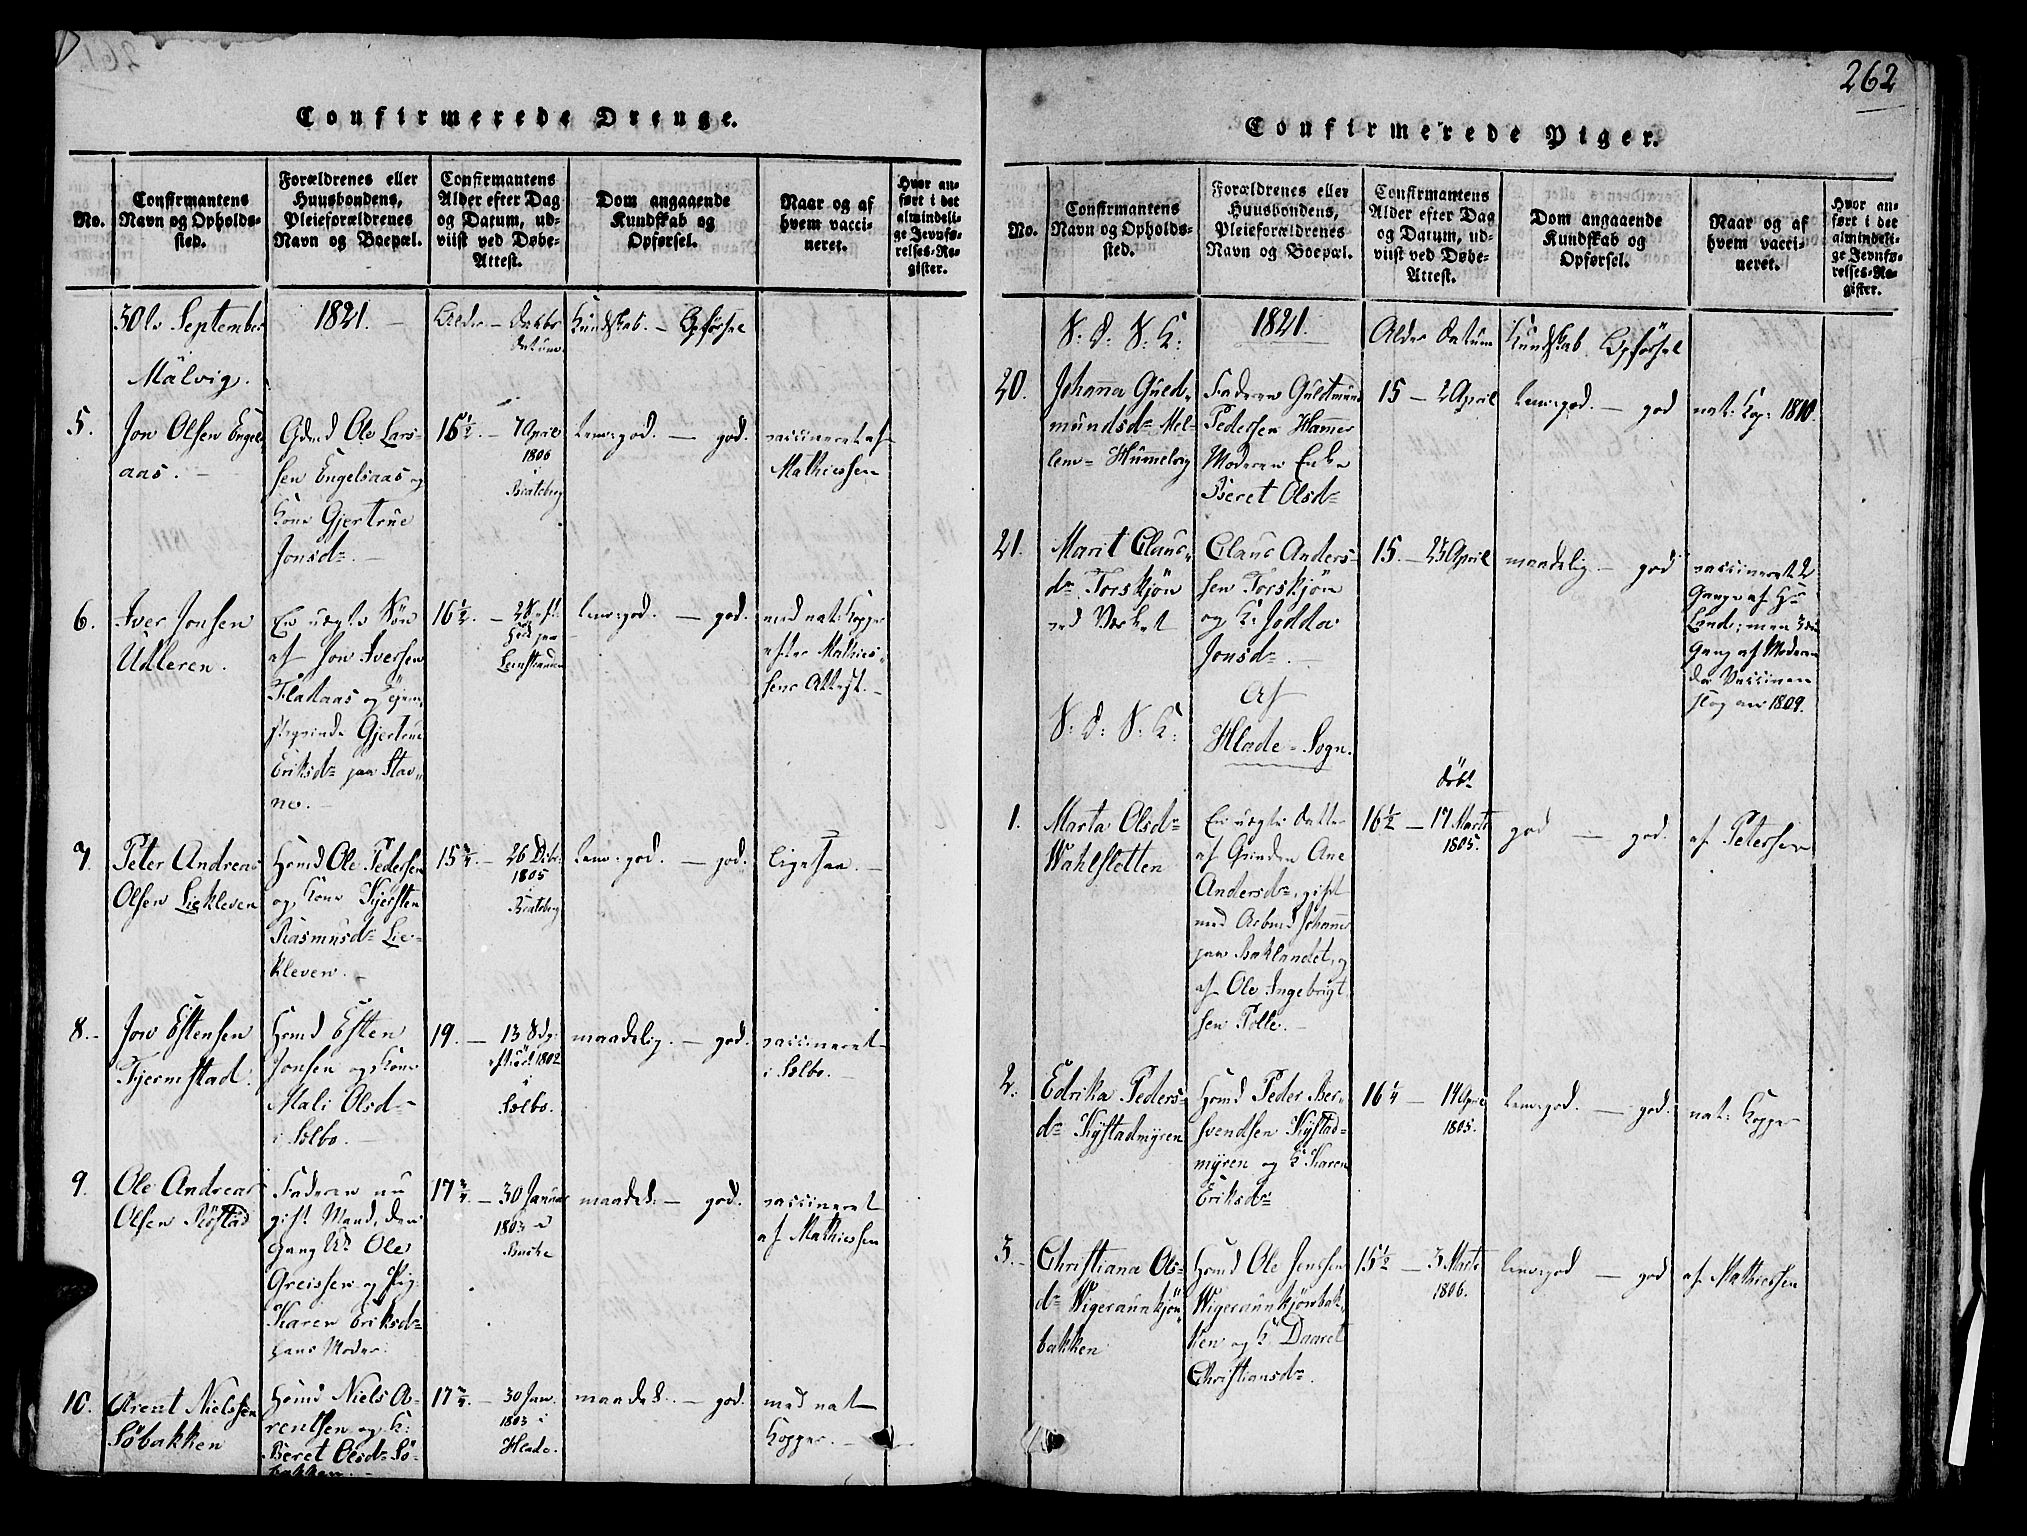 262
Confirmerede Drenge.
No.
Confirmantens
Navn og Opholds-
sted.
Forældrenes eller
Huusbondens,
Pleieforældrenes
Navn og Boepæl.
Confirmantens
Alder efter Dag
og Datum, ud-
viist ved Døbe-
Attest.
Dom angaaende
Kundskab og
Opførsel.
Naar og af
hvem vacci-
neret.
Hvor an-
ført i det
almindeli-
ge Jevnfø-
relses-Re-
gister.
30te September
1821.
Alder - Daabs
Datum.
Kundskab. - Opførsel
Malvig.
5.
Jon Olsen Engels
aas.
Gdmd Ole Lars-
sen Engelsaas og
Kone Gjertrue
Jonsdr.
15½. - 7 April
1806
i
Bratsberg
temgod. - god.
vaccineret af
Mathiessen
6.
Iver Jonsen
Udleren.
En uægte Søn
af Jon Iversen
Fladaas og
Gjertrue
Eriksdr paa Stav-
ne.
16½.
Leinstranden
temgod. - god.
med nat: Kopper
efter Mathies-
sens Attest.
7.
Peter Andreas
Olsen Liekleven
Hsmd Ole Pedersen
og Kone Kjersten
Rasmusdr Lie-
kleven.
15¾. - 26 Decbr:
1805
i
Bratsberg
temgod. - god.
Ligesaa.
8.
Jon Estensen
Fjermstad.
Hsmd Esten
Jonsen og Kone
Mali Olsdr
i Selbo.
19. - 13
1802
i
Selbo.
maadelig. - god.
vaccineret
i Selbo.
9.
Ole Andreas
Olsen Røstad
Faderen nu
gift Mand, den
Gang Uk Ole
Greissen og Pig.
Karen Eriksdr
hans Moder.
17¾ - 30 Januar
1803
maadel: - god.
vaccineret
af Mathiessen
10.
Arent Nielssen
Søbakken
Hsmd Niels A-
rentsen og K:
Beret Olsdr Sø-
bakken.
17¾ - 30 Jan.
1803 i
Hlade.
maadel. - god.
med nat
Kopper.
Confirmerede Piger.
No.
Confirmantens
Navn og Opholds-
sted.
Forældrenes eller
Huusbondens,
Pleieforældrenes
Navn og Boepæl.
Confirmantens
Alder efter Dag
og Datum, ud-
viist ved Døbe-
Attest.
Dom angaaende
Kundskab og
Opførsel.
Naar og af
hvem vacci-
neret.
Hvor an-
ført i det
almindeli-
ge Jevnfø-
relses-Re-
gister.
V: D: V: K:
1821.
Alder Datum
Kundskab. Opførsel
20.
Johanna Gued-
mundsdr Mel-
lem-Hummelvig
Faderen Guldmund
Pedersen Hammer
Moderen Enke
Beret Olsdr
15 - 2 April
temgod. - god
nat: Kop: 1810.
21.
Marit Claus-
dr Torskjøn
ved Værket
Claus Anders-
sen Torskjøn
og K: Jødda
Jonsdr.
15. - 25 April
maadelig. - god
vaccineret 2
Gange af Hr
Lund; men 3die
Gang af Moderen
da Vaccinen
slog an 1809.
V: D: V: K:
Af
Hlade-Sogn.
døbt
1.
Marta Olsdr
Wahlsletten
En uægte Datter
af Qvinden Ane
Andersdr, gift
med Arbmd Johannes
paa Baklandet, og
af Ole Ingebrigt-
sen Tolle.
16½ - 17 Marts
1805.
god - god.
af Petersen
2.
Edrika Peders-
dr Kystadmyren
Hsmd Peder Ber-
svendsen Kystad-
myren og K Karen
Eriksdr
16¼ - 14 April
1805.
temgod. - god.
nat: Kopper
3.
Christiana Ols-
dr Wigeraunkjøn-
bakken
Hsmd Ole Jenssen
Wigeraunkjønbak-
ken og K Daaret
Christiansdr.
15½ - 3 Marts
1806.
temgod - god
af Mathiessen